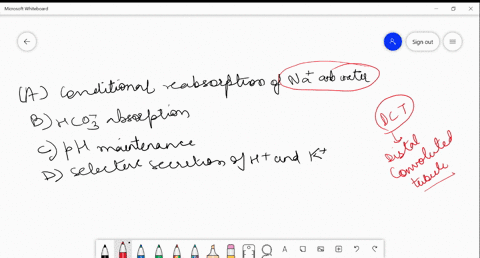 Microsoft Whiteboard
Sign out
(A) Conditional reabsorption of Na+ and water
B) HCO3- absorption
C) pH maintenance
D) Selective secretion of H+ and K+
DCT
Distal
Convoluted
tubule